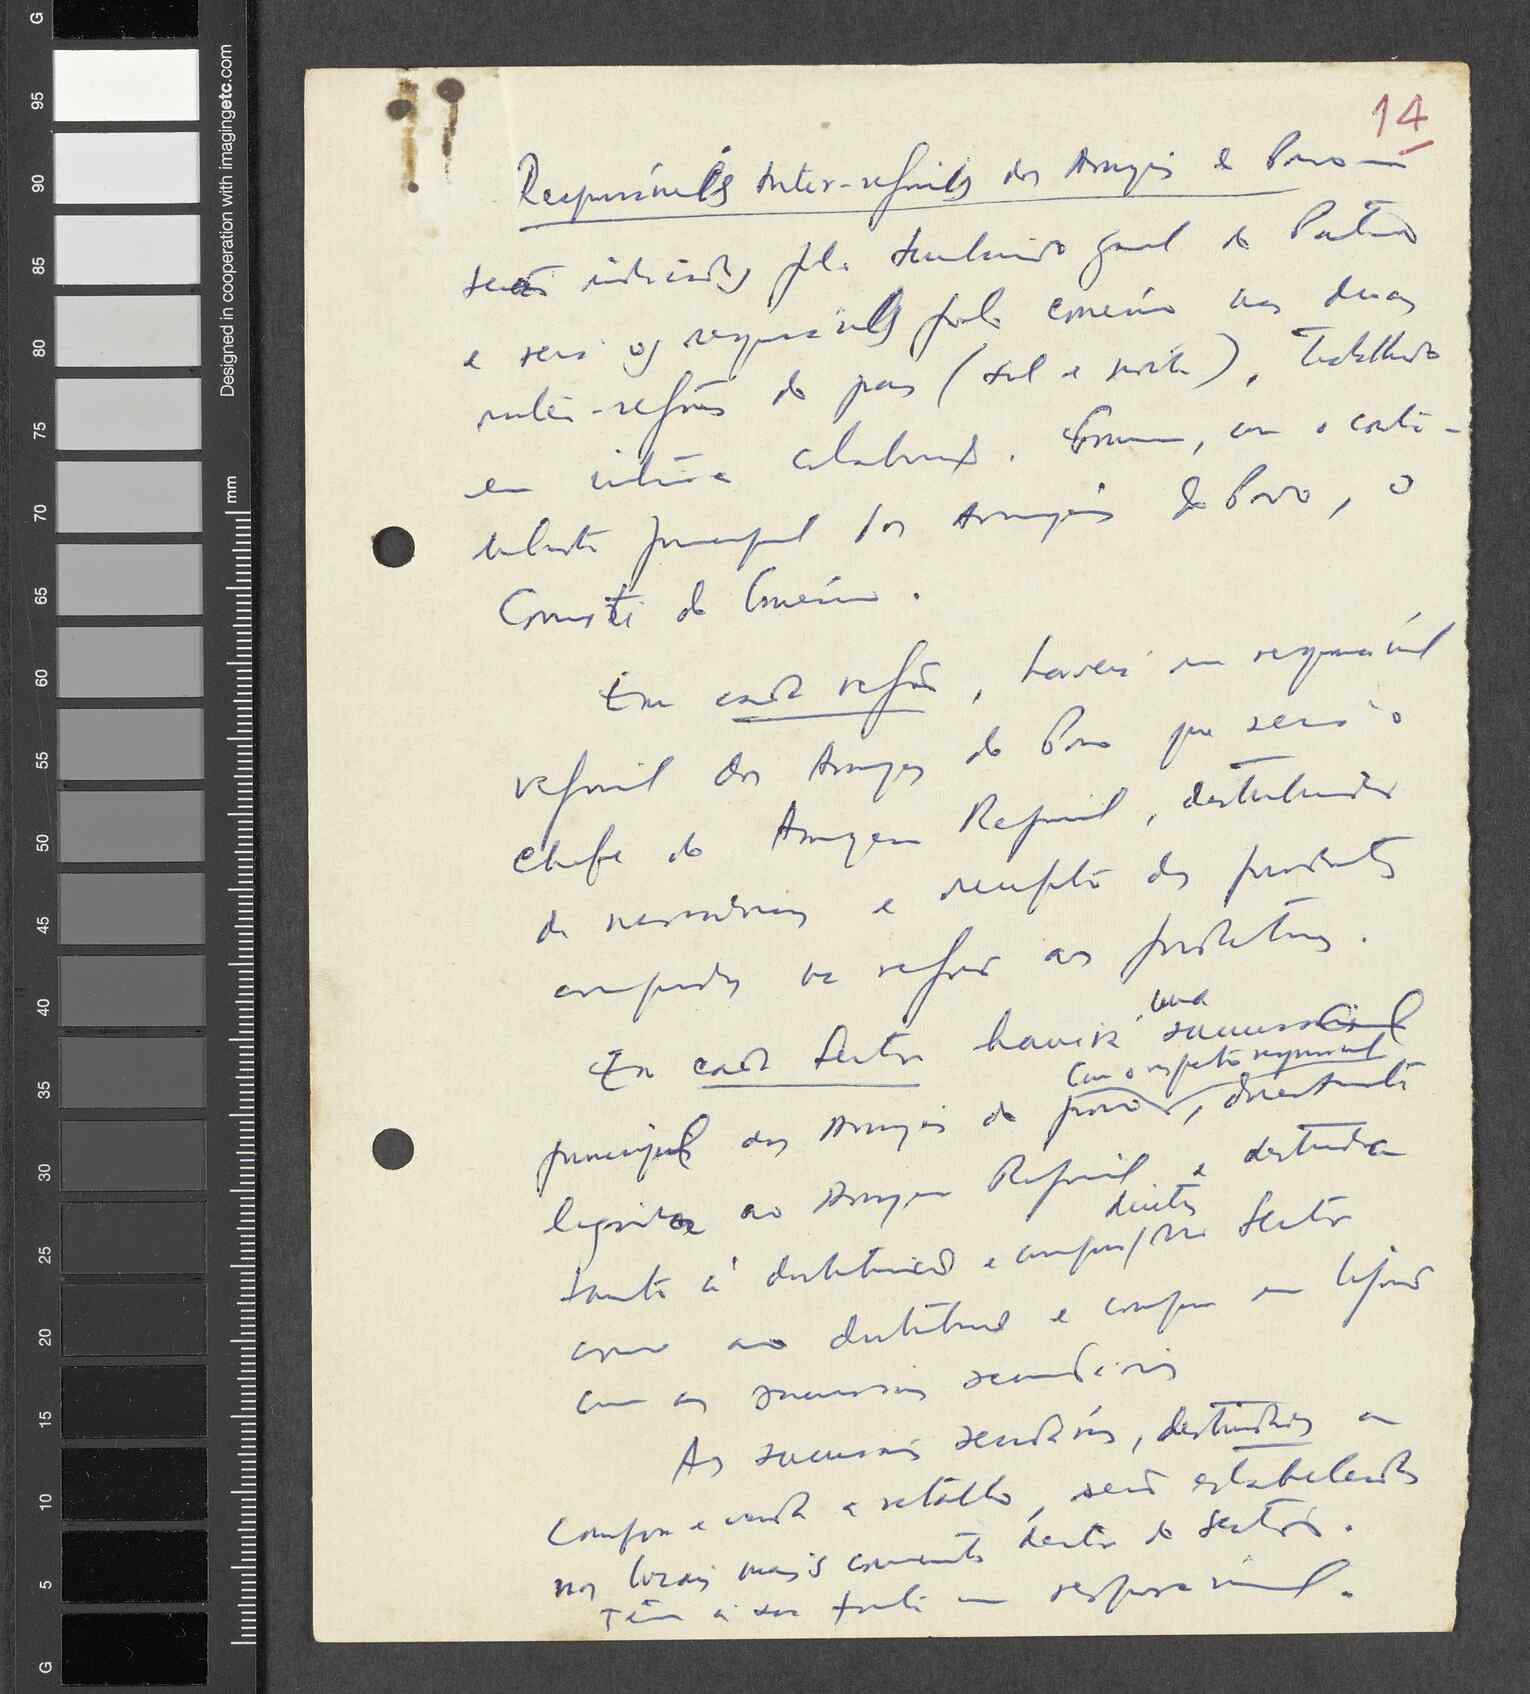 G
95
90
85
80
75
70
65
60
55
50
45
40
35
30
25
20
15
10
5
G
Designed in cooperation with imagingetc.com
mm
14
Responsáveis Inter-regionais dos Armazéns do Povo —
serão indicados pelo Secretariado geral do Partido
e serão os responsáveis pelo comércio nas duas
inter-regiões do país (sul e norte), trabalhando
em íntima colaboração. Formam, com o conta-
bilista principal dos Armazéns do Povo, o
Comité do Comércio.
Em cada região, haverá um responsável
regional dos Armazéns do Povo que será o
chefe do Armazém Regional, distribuidor
de mercadorias e receptor dos produtos
comprados na região aos produtores.
Em cada Sector haverá uma sucursal
com o respectivo responsável
principal dos Armazéns do povo, directamente
ligada ao Armazém Regional e destinada
directas
tanto à distribuição e compras no Sector
como ao distribuição e compra em ligação
com as sucursais secundárias
As sucursais secundárias, destinadas a
compra e venda a retalho, serão estabelecidas
nos locais mais convenientes dentro do Sector.
Têm à sua frente um responsável.